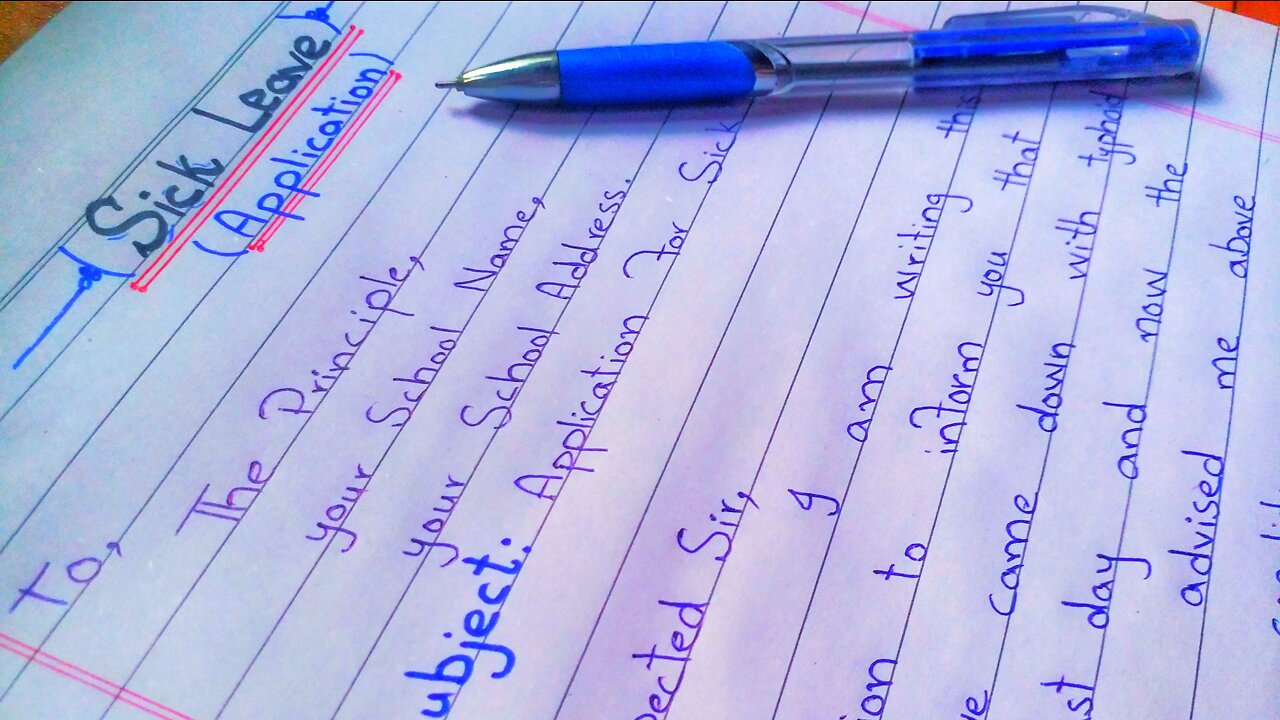 (Sick Leave)
(Application)
To,
The Principle,
your School Name,
your School Address.
ubject: Application for Sick
pected Sir,
I am writing this
ion to inform you that
ve came down with typhoid
st day and now the
advised me above